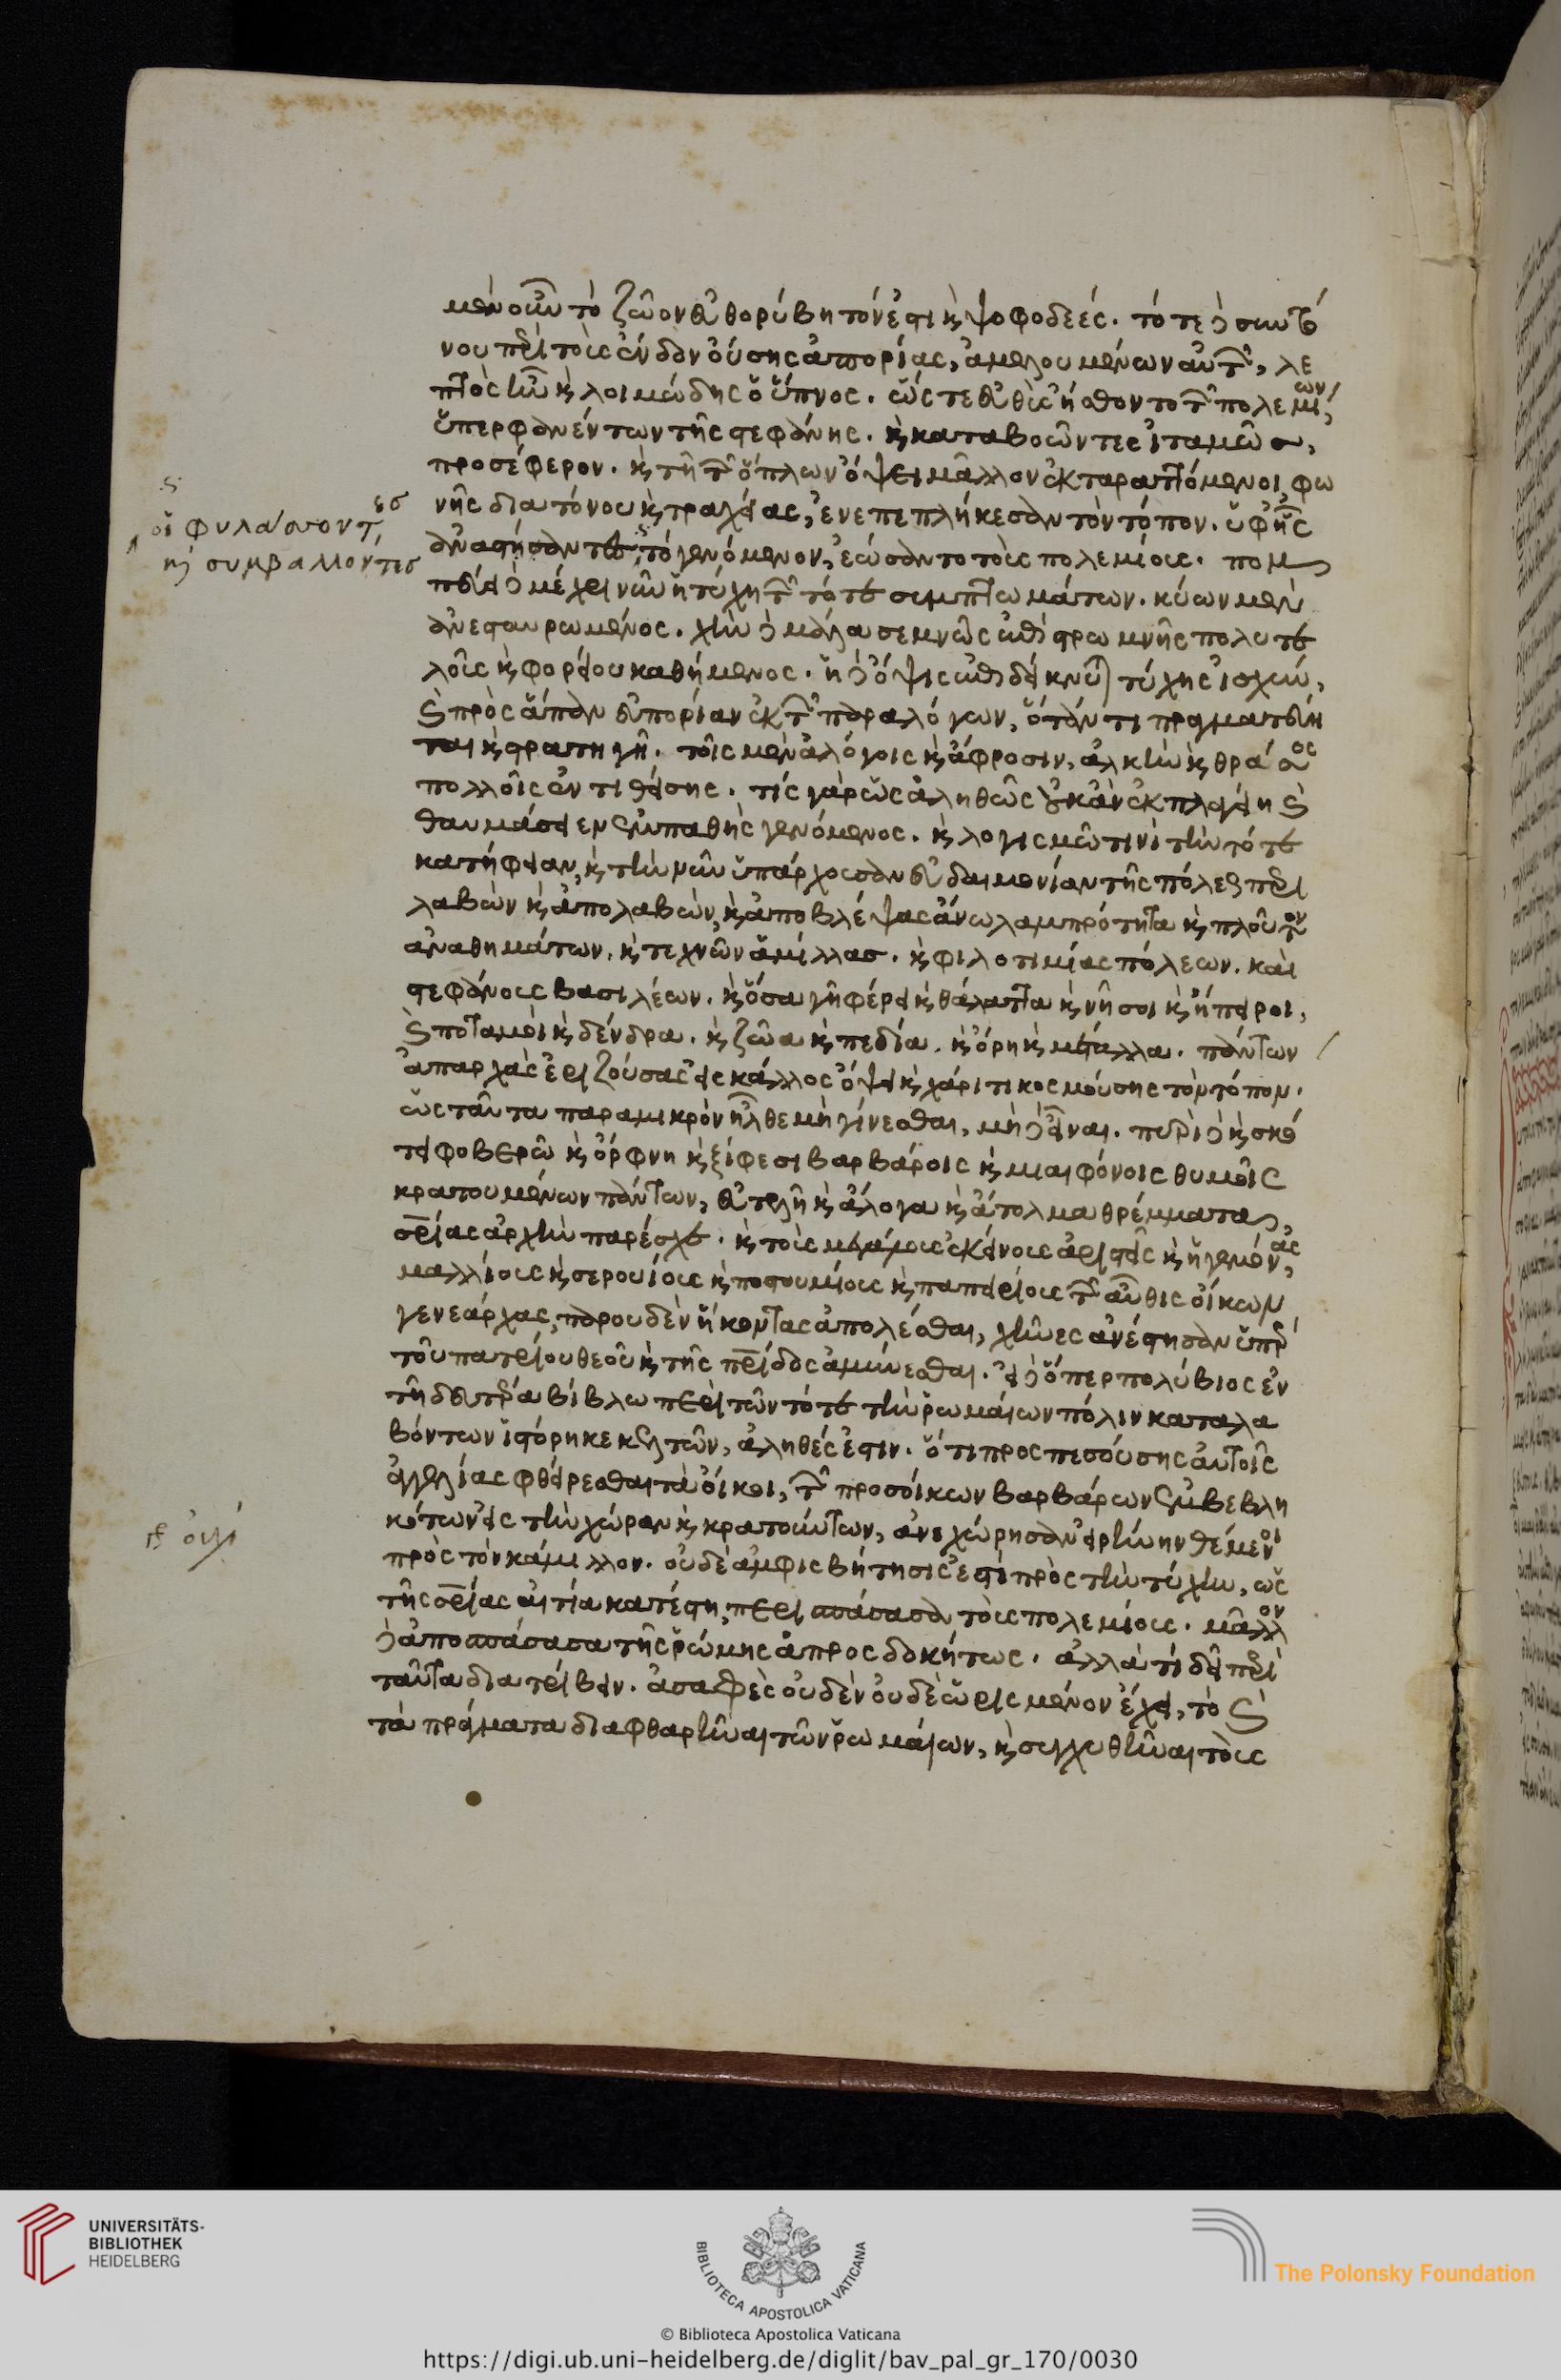 μὲν οὖν τὸ ζῶον εὐθορύβητόν ἐστι καὶ ψοφοδεές. τότε δὲ συντό
νου περὶ τοὺς ἔνδον οὔσης ἀπορίας, ἀμελουμένων αὐτῶν, λε
πτὸς ἦν καὶ λοιμώδης ὁ ὕπνος. ὥστε εὐθὺς ἤσθοντο τῶν πολεμίων,
ὑπερφανέντων τῆς στεφάνης. καὶ καταβοῶντες ἰταμῶσ,
προσέφερον. καὶ τῆ τῶν ὅπλων ὄψει μᾶλλον ἐκταραττόμενοι φω
νῆς διατόνου καὶ τραχείας, ἐνεπεπλήκεσαν τὸν τόπον. ὑφῆς
οἱ φυλάσσοντεσ
καὶ συμβαλλοντεσ
ἀναστήσαντες, τὸ γενόμενον, ἐώσαντο τοὺς πολεμίους. πομ
πεύει δὲ μέχρι νῦν ἡ τύχη τῶν τότε συμπτωμάτων. κύων μὲν
ἀνεσταυρωμένος. χὴν δὲ μάλα σεμνῶς ἐπὶ στρωμνῆς πολυτε
λοῖς καὶ φορείου καθήμενος. ἡ δὲ ὄψις ἐπιδείκνυται τύχης ἰσχὺν,
καὶ πρὸς ἅπαν εὐπορίαν ἐκ τῶν παραλόγων, ὅταν τι πραγματεύη
ται καὶ στρατηγῆ. τοῖς μὲν ἀλόγοις καὶ ἄφροσιν, ἀλκὴν καὶ θράσος
πολλοῖς ἀντιθείσης. τίς γὰρ ὡς ἀληθῶς οὐκ ἂν ἐκπλαγείη καὶ
θαυμάσειεν ἐμπαθὴς γενόμενος. καὶ λογισμῶ τινὶ τὴν τότε
κατήφειαν, καὶ τὴν νῦν ὑπάρχουσαν εὐδαιμονίαν τῆς πόλεως περι
λαβὼν καὶ ἀπολαβὼν, καὶ ἀποβλέψας ἄνω λαμπρότητα καὶ πλοῦτον
ἀναθημάτων. καὶ τεχνῶν ἁμίλλασ. καὶ φιλοτιμίας πόλεων. καὶ
στεφάνους βασιλέων. καὶ ὅσα γῆ φέρει καὶ θάλαττα καὶ νῆσοι καὶ ἤπειροι,
καὶ ποταμοὶ καὶ δένδρα. καὶ ζῶα καὶ πεδία. καὶ ὄρη καὶ μέταλλα. πάντων
ἀπαρχὰς ἐριζούσας εἰς κάλλος ὄψει καὶ χάριτι κοσμούσης τὸν τόπον.
ὡς ταῦτα παραμικρὸν ἦλθε μὴ γίνεσθαι, μὴ δὲ εἶναι. πυρὶ δὲ καὶ σκό
τει φοβερῶ καὶ ὄρφνη καὶ ξίφεσι βαρβάροις καὶ μιαιφόνοις θυμοῖς
κρατουμένων πάντων, εὐτελῆ καὶ ἄλογα καὶ ἄτολμα θρέμματα,
σωτηρίας ἀρχὴν παρέσχε. καὶ τοὺς μεγάλους ἐκείνους ἀριστεῖς καὶ ἡγεμόνας,
μαλλίους καὶ σερουίους καὶ ποστουμίους καὶ παπειρίους τῶν αὖθις οἴκων
γενεάρχας, παρουδὲν ἥκοντας ἀπολέσθαι, χῆνες ἀνέστησαν ὑπὲρ
τοῦ πατρίου θεοῦ καὶ τῆς πατρίδος ἀμύνεσθαι. εἰ δὲ ὅπερ πολύβιος ἐν
τῆ δευτέρα βίβλω περὶ τῶν τότε τὴν ῥωμαίων πόλιν καταλα
βόντων ἱστόρηκε κελτῶν, ἀληθές ἐστιν. ὅτι προσπεσούσης αὐτοῖς
ἀγγελίας φθείρεσθαι τὰ οἴκοι, τῶν προσοίκων βαρβάρων ἐμβεβλη
κότων εἰς τὴν χώραν καὶ κρατούντων, ἀνεχώρησαν εἰρήνην θέμενοι
πρὸς τὸν κάμιλλον. οὐδὲ ἀμφισβήτησίς ἐστι πρὸς τὴν τύχην, ὡς
τῆς σωτηρίας αἰτία κατέστη, περισπάσασα τοὺς πολεμίους. μᾶλλον
δὲ ἀποσπάσασα τῆς ῥώμης ἀπροσδοκήτως. ἀλλὰ τί δεῖ περὶ
ταῦτα διατρίβειν. ἀσαφὲς οὐδὲν οὐδὲ ὡρισμένον ἔχει, τὸ καὶ
τὰ πράγματα διαφθαρῆναι τῶν ῥωμαίων, καὶ συγχυθῆναι τοὺς
UNIVERSITÄTS-
BIBLIOTHEK
HEIDELBERG
BIBLIOTECA APOSTOLICA VATICANA
The Polonsky Foundation
© Biblioteca Apostolica Vaticana
https://digi.ub.uni-heidelberg.de/diglit/bav_pal_gr_170/0030